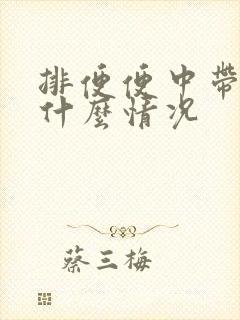 排便便中帶
什麼情况
蔡三梅